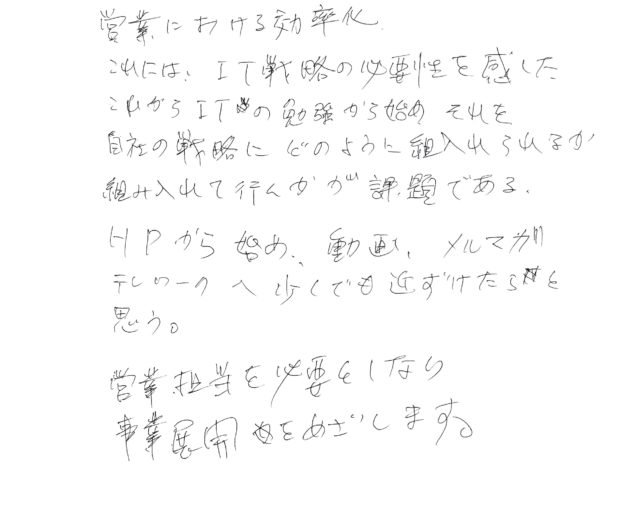 営業における効率化
これには、IT戦略の必要性を感じた
これからITの勉強から始め それを
自社の戦略にどのように組入れられるか
組み入れて行くかが課題である。
HPから始め、動画、メルマガ
テレワークへ少しでも近ずけたらと
思う。
営業担当を必要としない
事業展開をめざします。